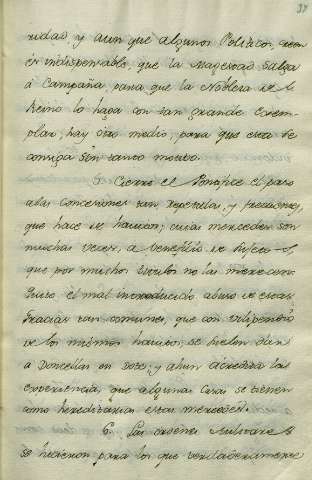 37
ridad y aun que algunos Politicos, creen
es indispensable, que la Magestad salga
á Campaña, para que la Nobleza de el
Reino lo haga con tan grande Exem-
plar, hay otro medio, para que esta se
consiga con tanto
5. Cierre el Pontifice el paso
a las Concesiones tan repetidas, y frecuentes,
que hace de havitos; cuias mercedes son
muchas veces, a venefisio de sujetos
que por muchos titulos no las merecieron
el mal introducido abuso de estas
Gracias tan comunes, que con vilipendio
de los mismos havitos, se suelen dar
a Doncellas en Dote; y ahun acredita la
experiencia, que algunas Casas se tienen
como hereditarias estas mercedes.
6. Las ordenes Militares
se hicieron para los que verdaderamente